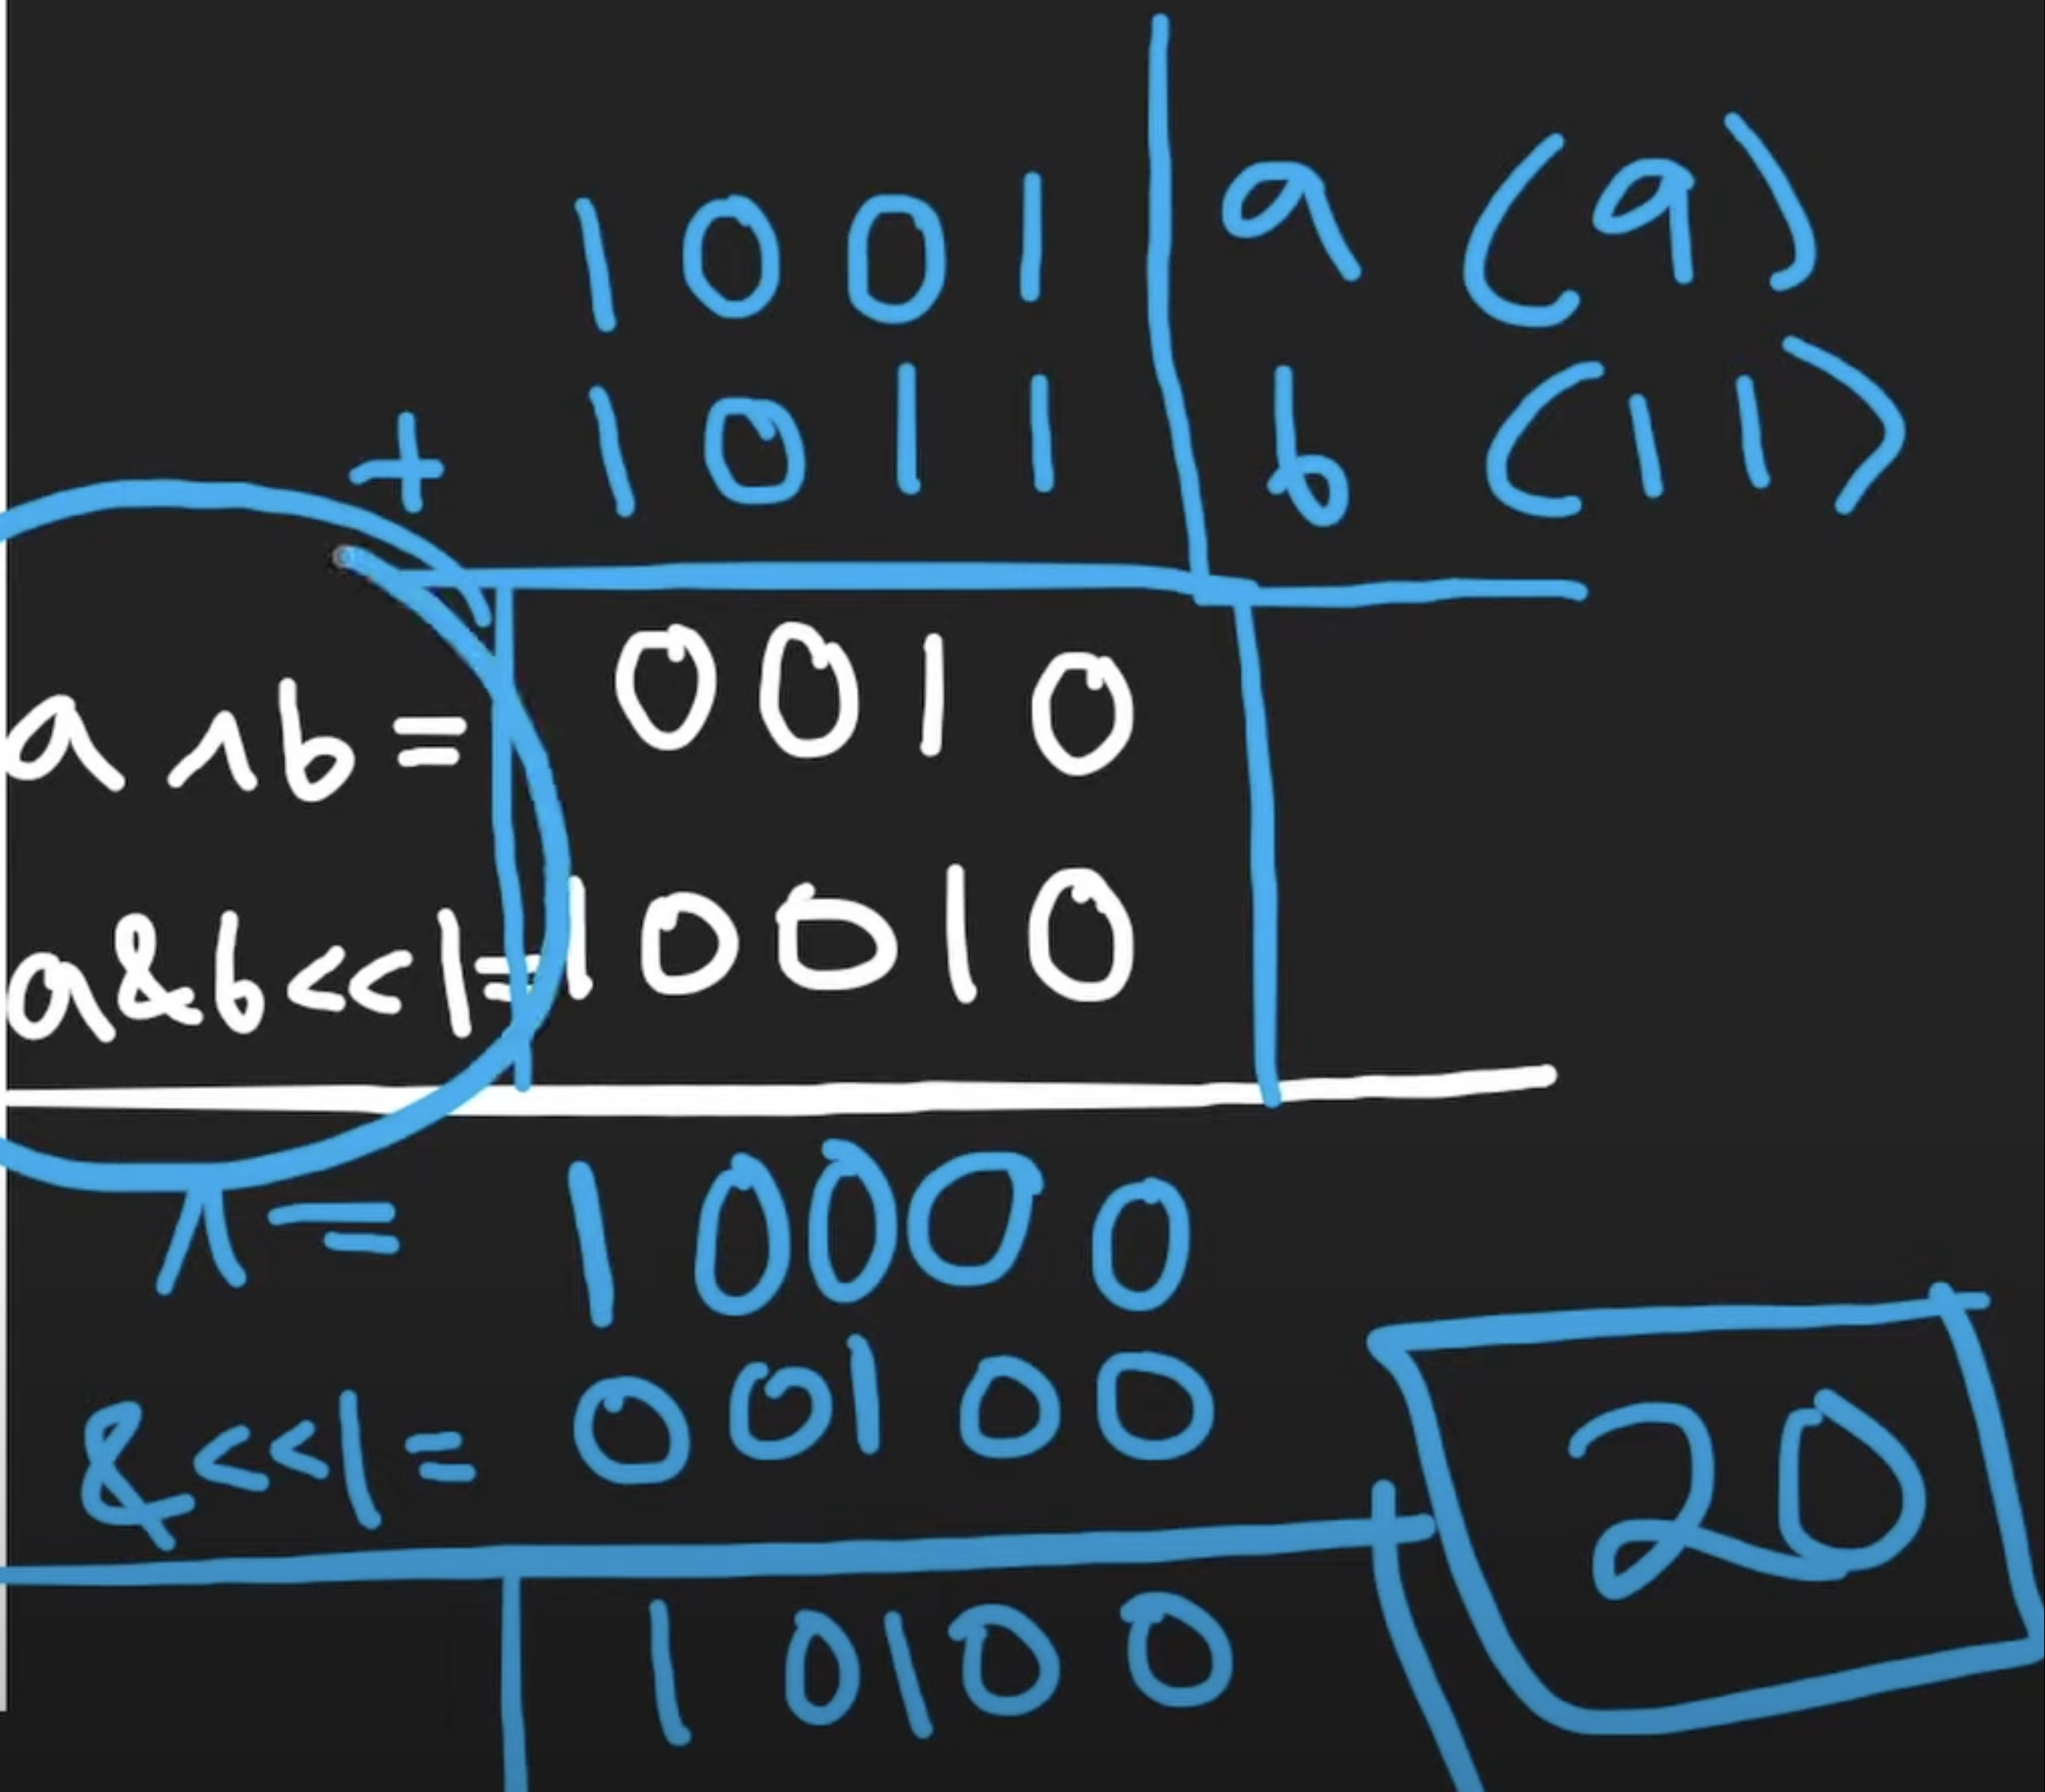 1001 a (9)
+ 1011 b (11)
a ^ b = 0010
a&b<<1= 10010
^ = 10000
&<<1= 00100
10100
20